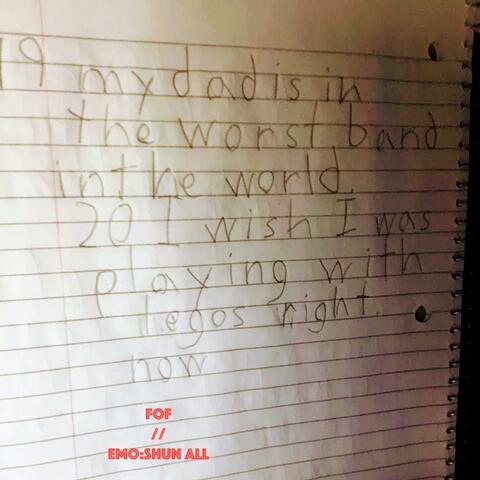 19 my dad is in
the worst band
in the world.
20 I wish I was
playing with
legos right.
now
FOF
//
EMO:SHUN ALL